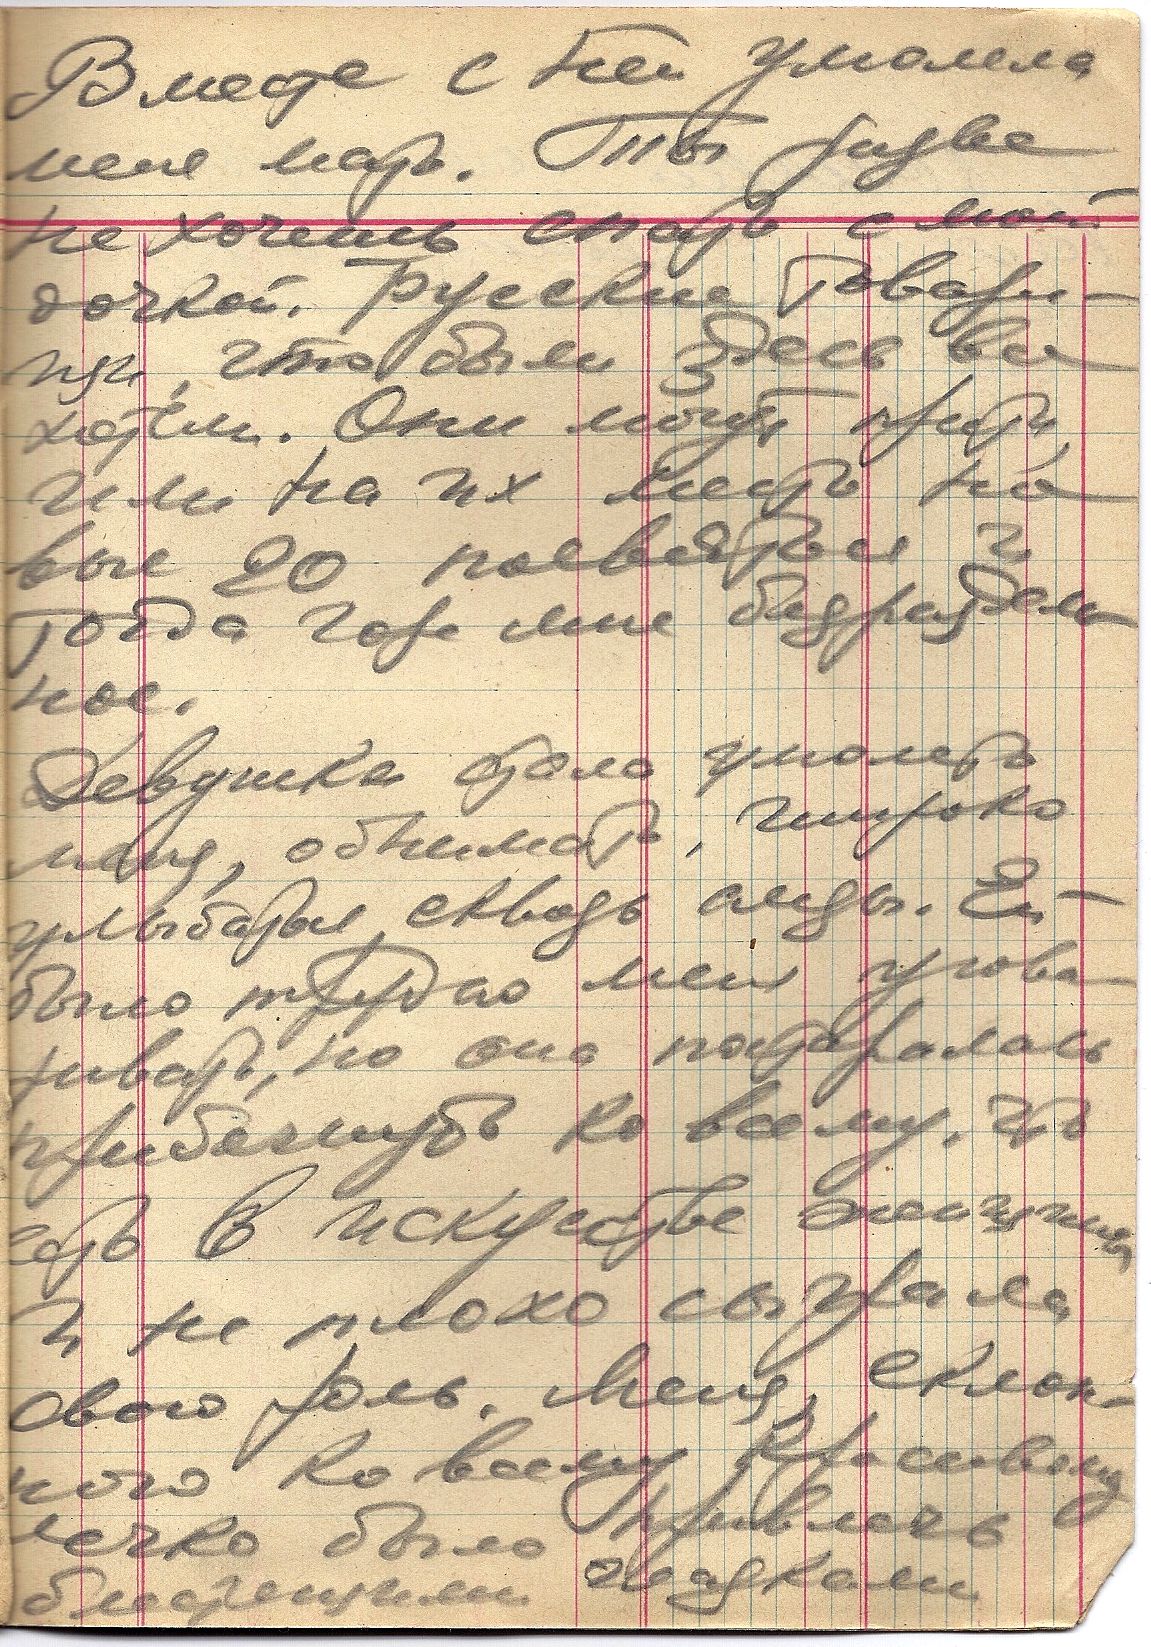 Вместе с ней умоляла
меня мать. Ты разве
не хочешь спать с моей
дочкой. Русские товари-
щи, что были здесь все
хотели. Они могут прити,
или на их место но-
вые 20 появятся и
тогда горе мне безраздель-
ное.
Девушка стала умолять
меня, обнимать, широко
улыбаться сквозь слезы. Ей
было трудно меня угова-
ривать, но она постаралась
прибегнуть ко всему, что
есть в искусстве женщины
и не плохо сыграла
свою роль. Меня, склон-
ного ко всему красивому
легко было привлечь
блестящими глазками